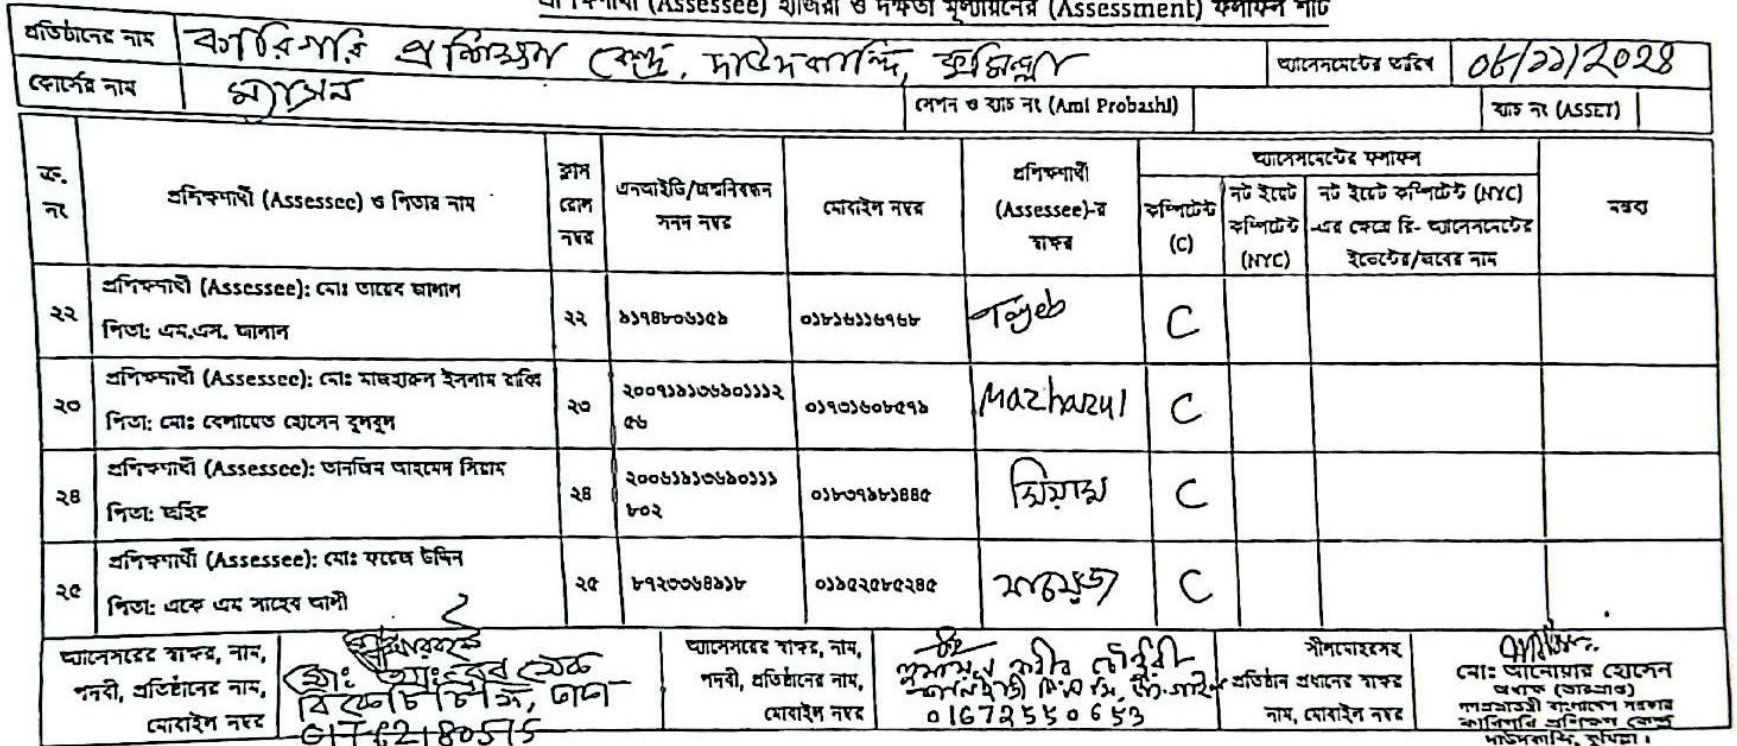 প্রশিক্ষণার্থী (Assessee) হাজিরা ও দক্ষতা মূল্যায়নের (Assessment) ফলাফল শীট
প্রতিষ্ঠানের নাম কারিগরি প্রশিক্ষণ কেন্দ্র, দাউদকান্দি, কুমিল্লা এ্যাসেসমেন্টের তারিখ
কোর্সের নাম ম্যাসন সেশন ও ব্যাচ নং (Ami Probashi) ব্যাচ নং (ASSET)
ক্র. নং
প্রশিক্ষণার্থী (Assessee) ও পিতার নাম
ক্লাস রোল নম্বর
এনআইডি/জন্মনিবন্ধন সনদ নম্বর
মোবাইল নম্বর
প্রশিক্ষণার্থী (Assessee)-র স্বাক্ষর
এ্যাসেসমেন্টের ফলাফল
কম্পিটেন্ট (C)
নট ইয়েট কম্পিটেন্ট (NYC)
নট ইয়েট কম্পিটেন্ট (NYC) -এর ক্ষেত্রে রি- এ্যাসেসমেন্টের ইভেন্টের/জবের নাম
মন্তব্য
২২ প্রশিক্ষণার্থী (Assessee): মোঃ তায়েব জামান
পিতা: এম.এস. জামান
২২ ১১৭৪৮০৬১৫৯ ০১৮১৬১১৬৭৬৮ Tayeb C
২৩ প্রশিক্ষণার্থী (Assessee): মো: মাজহারুল ইসলাম রাব্বি
পিতা: মো: বেলায়েত হোসেন বুলবুল
২৩ ২০০৭১৯১৩৬৯০১১১২
৫৬
০১৭৩১৬০৮৫৭৯ Mazharul C
২৪ প্রশিক্ষণার্থী (Assessee): তানজিন আহমেদ সিয়াম
পিতা: জহির
২৪ ২০০৬১৯১৩৬৯০১১১
৮০২
০১৮৩৭৯৮১৪৪৫ সিয়াম C
২৫ প্রশিক্ষণার্থী (Assessee): মো: ফয়েজ উদ্দিন
পিতা: একে এম সাহেব আলী
২৫ ৮৭২৩৩৬৪৯১৮ ০১৯৫২৫৮৫২৪৫ C
এ্যাসেসরের স্বাক্ষর, নাম,
পদবী, প্রতিষ্ঠানের নাম,
মোবাইল নম্বর
এ্যাসেসরের স্বাক্ষর, নাম,
পদবী, প্রতিষ্ঠানের নাম,
মোবাইল নম্বর
হুমায়ুন কবীর চৌধুরী
01672550653
সীলমোহরসহ
প্রতিষ্ঠান প্রধানের স্বাক্ষর
নাম, মোবাইল নম্বর
মো: আনোয়ার হোসেন
অধ্যক্ষ (ভারপ্রাপ্ত)
গণপ্রজাতন্ত্রী বাংলাদেশ সরকার
কারিগরি প্রশিক্ষণ কেন্দ্র
দাউদকান্দি, কুমিল্লা।